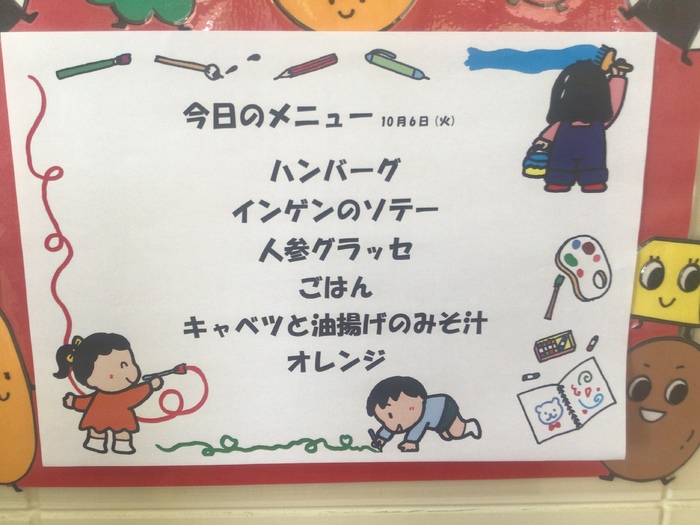 今日のメニュー 10月6日(火)
ハンバーグ
インゲンのソテー
人参グラッセ
ごはん
キャベツと油揚げのみそ汁
オレンジ